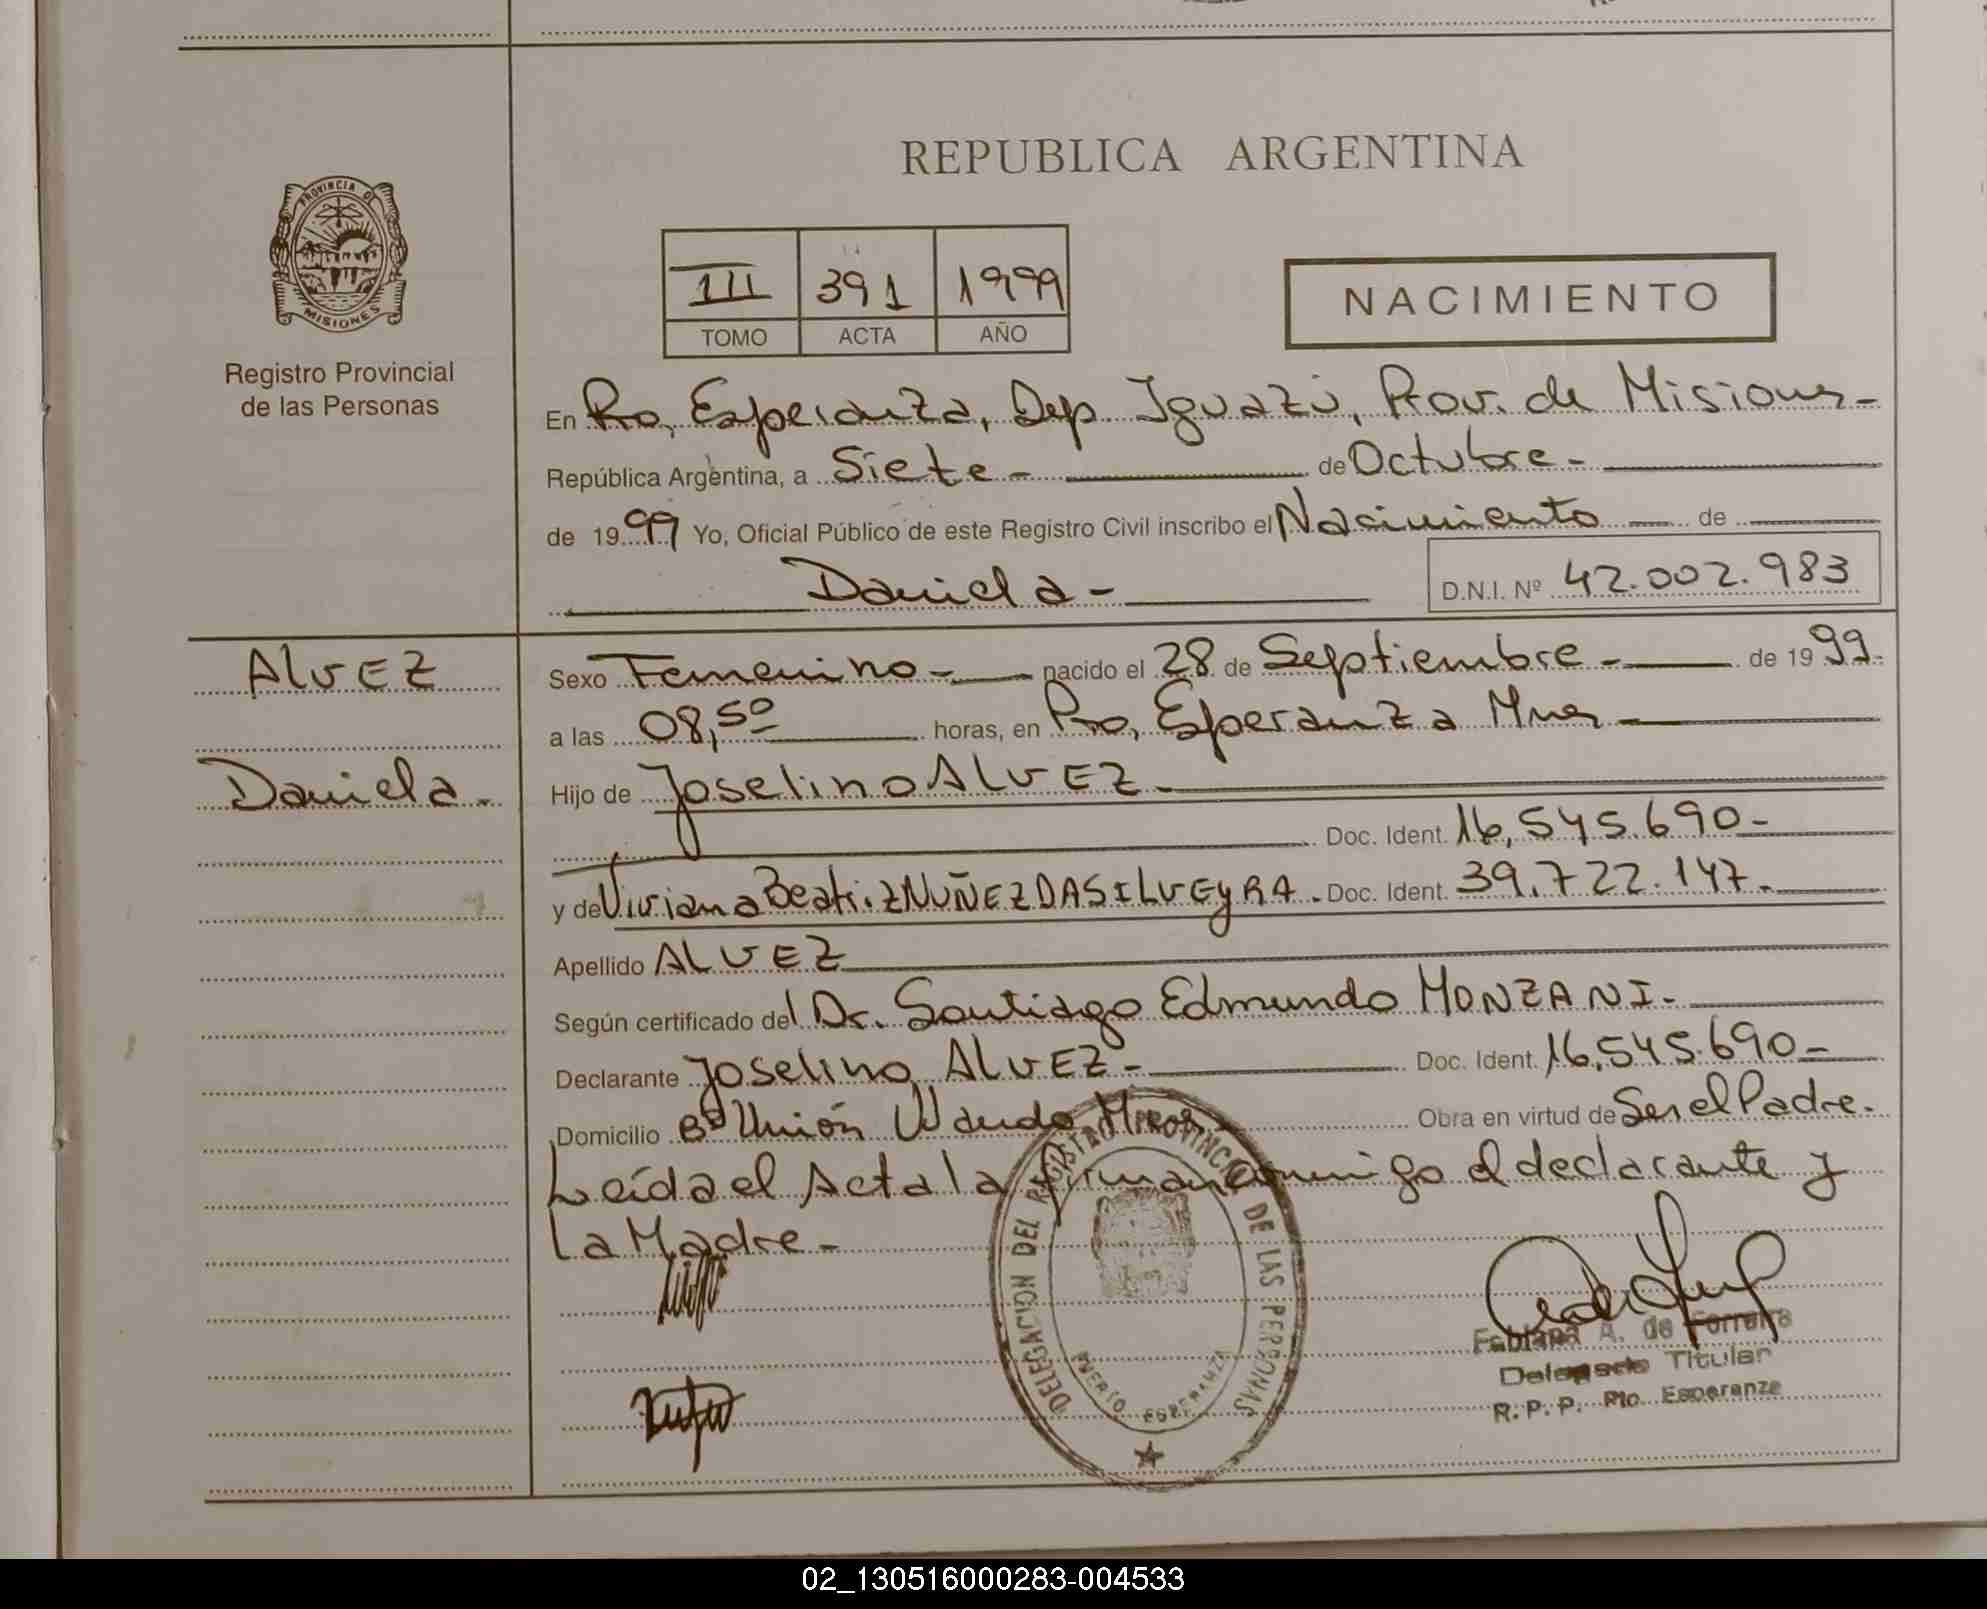 PROVINCIA DE
MISIONES
Registro Provincial
de las Personas
REPUBLICA ARGENTINA
III 391 1999
TOMO ACTA AÑO
NACIMIENTO
En Pto, Esperanza, Dep. Iguazú, Prov. de Misiones-
República Argentina, a Siete- de Octubre-
de 1999 Yo, Oficial Público de este Registro Civil inscribo el Nacimiento de
Daniela-
D.N.I. Nº 42.002.983
ALVEZ
Daniela.
Sexo Femenino- nacido el 28 de Septiembre- de 1999.
a las 08,50 horas, en Pto, Esperanza Mnes-
Hijo de Joselino ALVEZ-
Doc. Ident. 16,545.690-
y de Viviana Beatriz NUÑEZ DASILVEyRA. Doc. Ident. 39.722.147.
Apellido ALVEZ
Según certificado del Dr. Santiago Edmundo MONZANI-
Declarante Joselino ALVEZ- Doc. Ident. 16,545.690-
Domicilio Bº Unión Wanda Mnes- Obra en virtud de Ser el Padre.
Leída el Acta la firman conmigo el declarante y
La Madre-
DELEGACION DEL REGISTRO PROVINCIAL DE LAS PERSONAS
PUERTO ESPERANZA
Fabiana A. de Ferreira
Delegada Titular
R.P.P. Pto. Esperanza
02_130516000283-004533